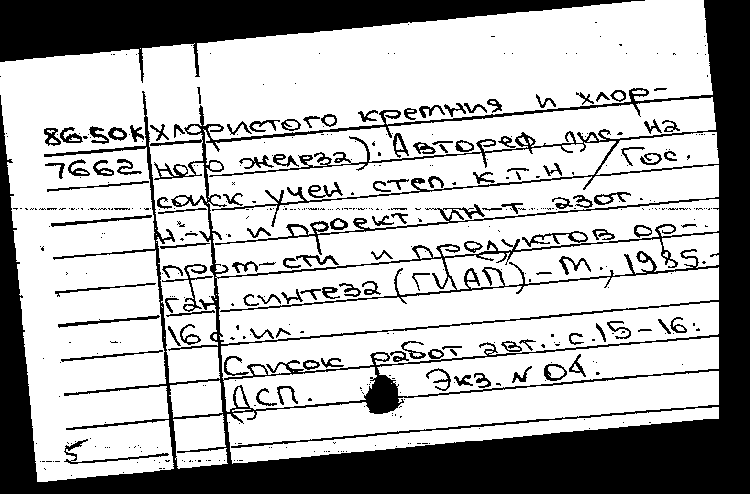 86-50к хлористого кремния и хлор-
7662 ного железа): Автореф. дис. на
соиск. учен. степ. к.т.н. / Гос.
н.-и. и проект. ин-т азот.
пром-сти и продуктов ор-
ган. синтеза (ГИАП). - М., 1985. -
16 с.: ил.
Список работ авт.: с. 15-16.
ДСП. Экз. № 04.
5